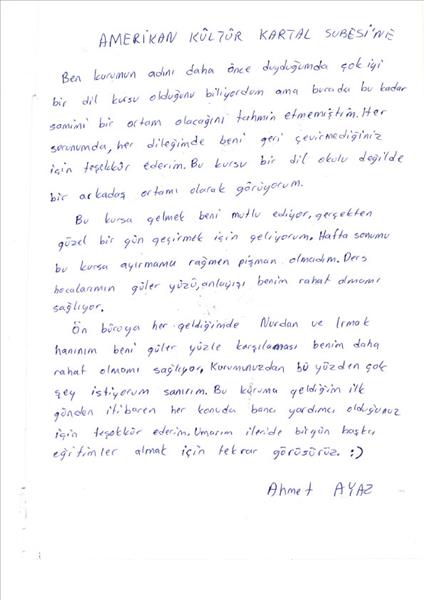 AMERİKAN KÜLTÜR KARTAL ŞUBESİ'NE
Ben kurumun adını daha önce duyduğumda çok iyi
bir dil kursu olduğunu biliyordum ama burada bu kadar
samimi bir ortam olacağını tahmin etmemiştim. Her
sorunumda, her dileğimde beni geri çevirmediğiniz
için teşekkür ederim. Bu kursu bir dil okulu değilde
bir arkadaş ortamı olarak görüyorum.
Bu kursa gelmek beni mutlu ediyor, gerçekten
güzel bir gün geçirmek için geliyorum. Hafta sonumu
bu kursa ayırmama rağmen pişman olmadım. Ders
hocalarımın güler yüzü, anlayışı benim rahat olmamı
sağlıyor.
Ön büroya her geldiğimde Nurdan ve Irmak
hanımın beni güler yüzle karşılaması benim daha
rahat olmamı sağlıyor. Kurumunuzdan bu yüzden çok
şey istiyorum sanırım. Bu kuruma geldiğim ilk
günden itibaren her konuda bana yardımcı olduğunuz
için teşekkür ederim. Umarım ileride bir gün başka
eğitimler almak için tekrar görüşürüz. :)
Ahmet AYAZ